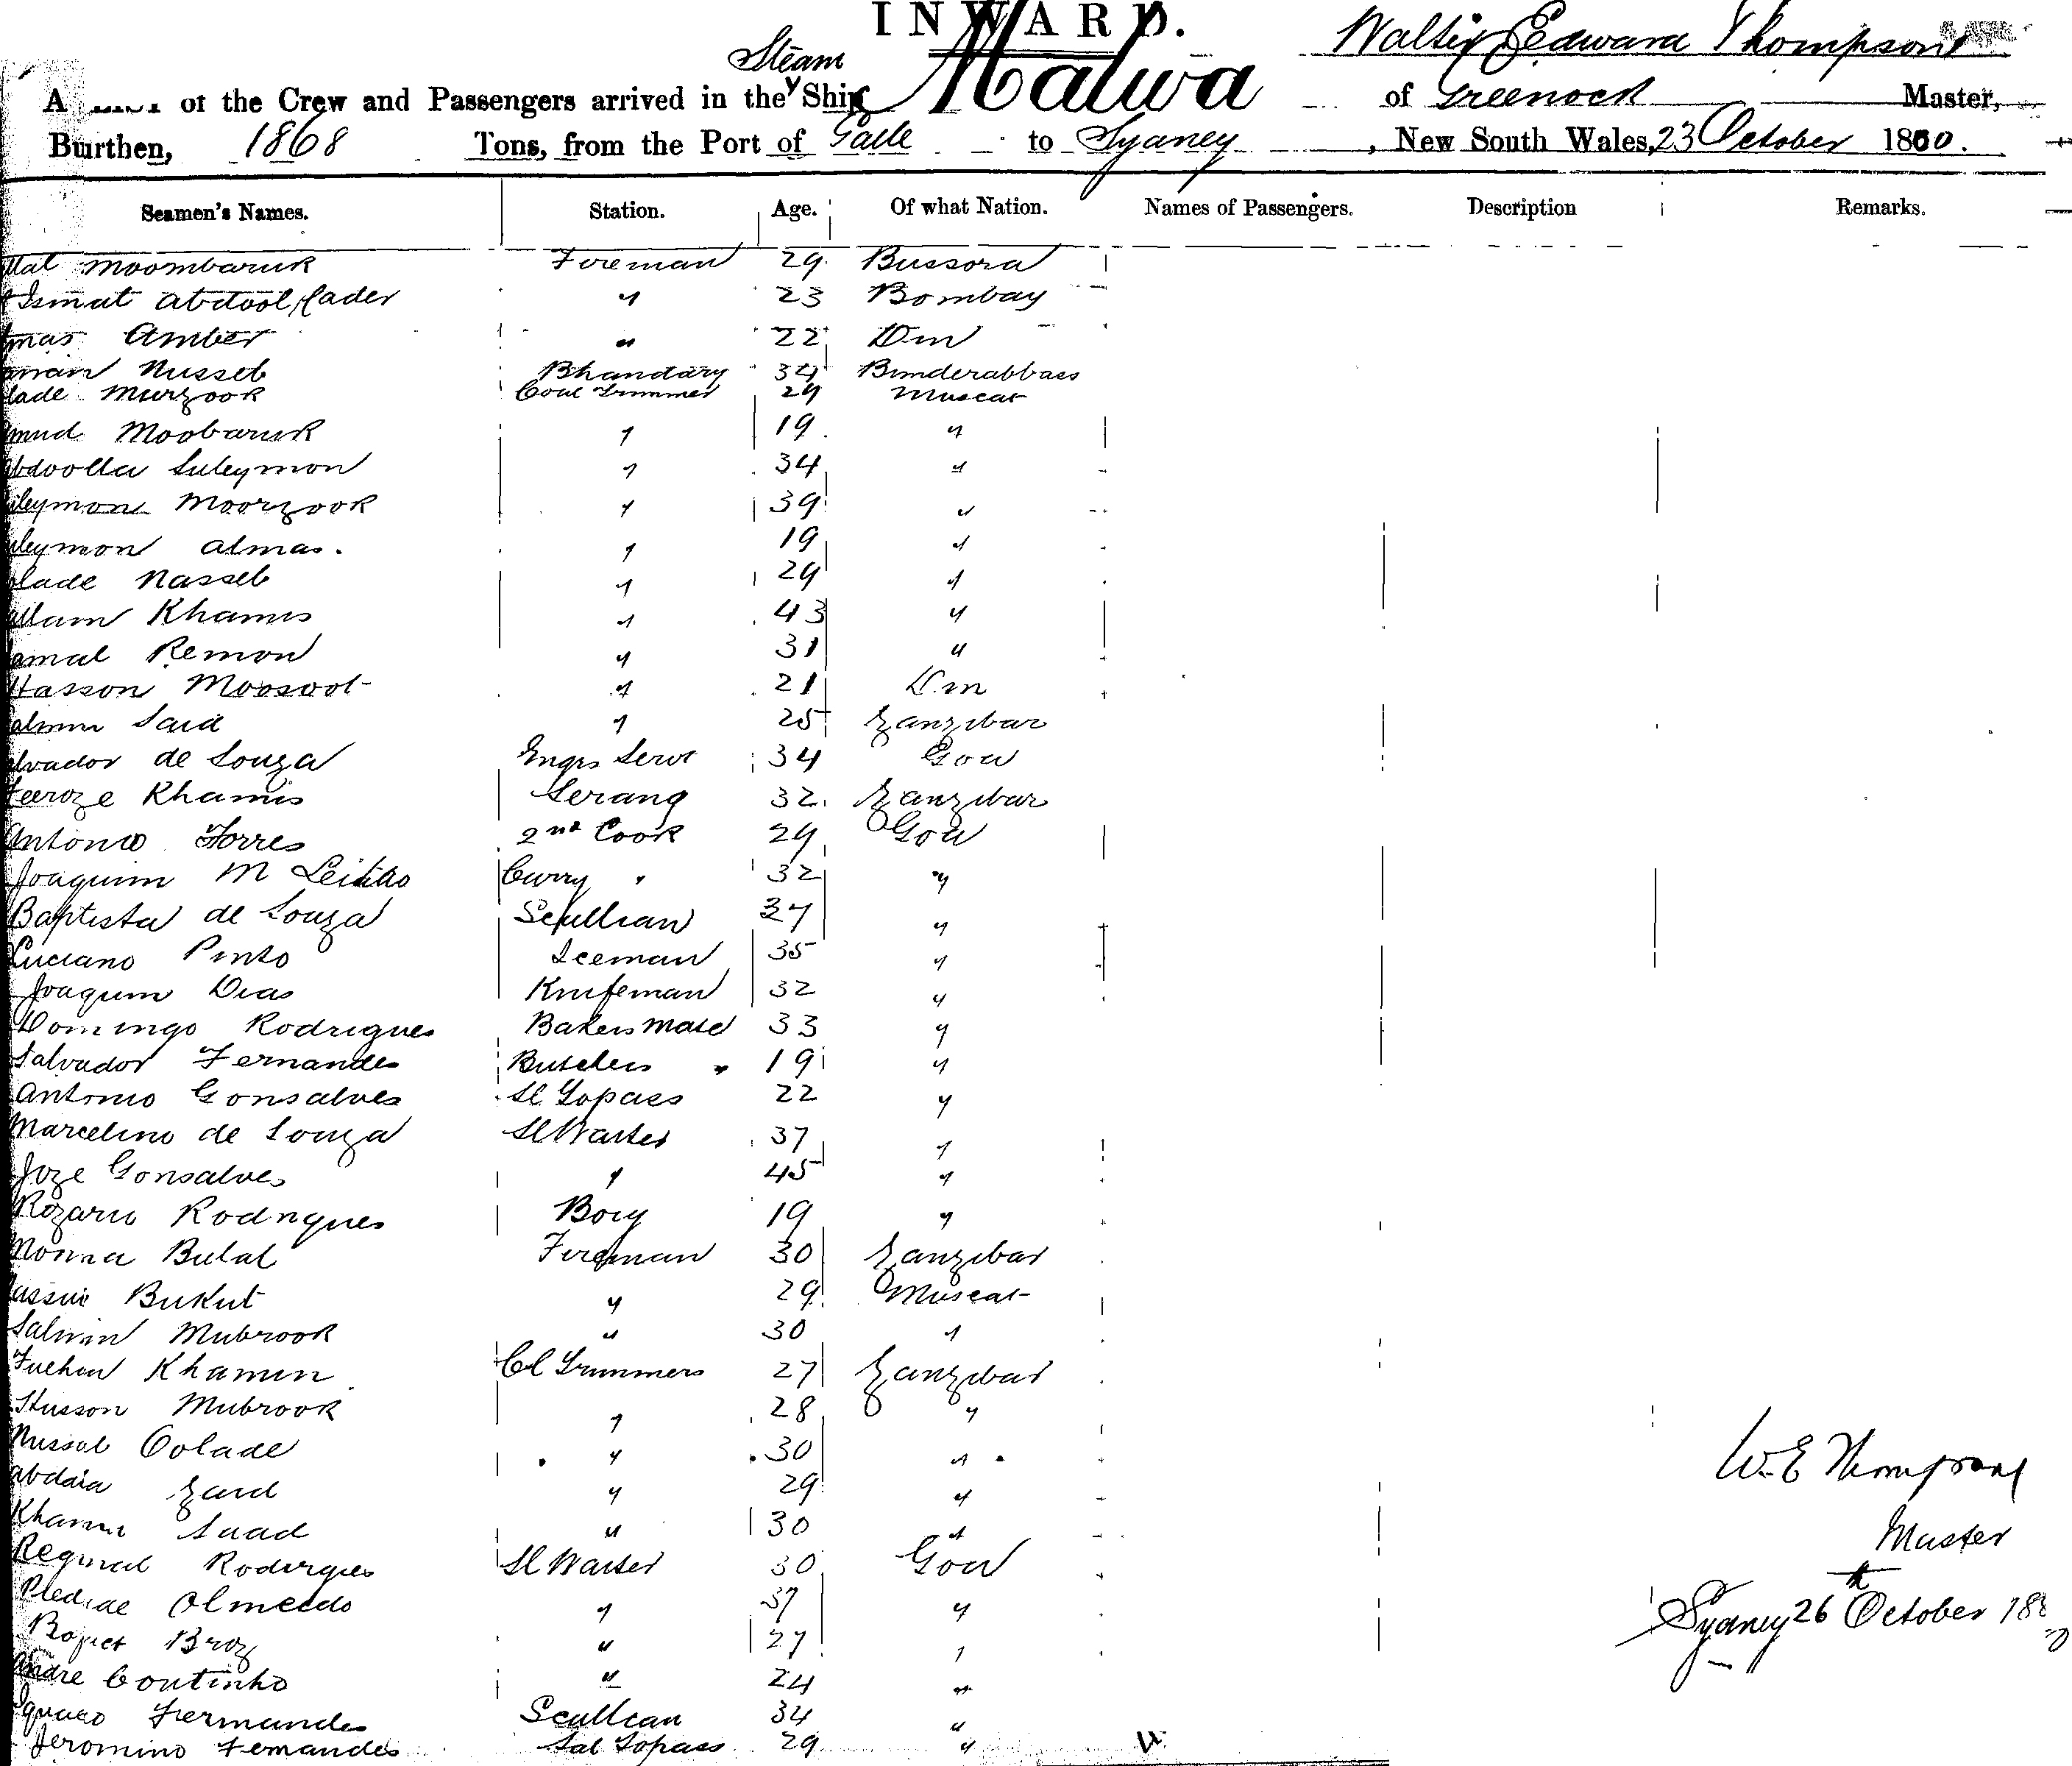 INWARD.
Steam
Walter Edward Thompson
A of the Crew and Passengers arrived in the Ship Malwa of Greenock Master,
Burthen, 1868 Tons, from the Port of Galle to Sydney, New South Wales, 23 October 1880.
Seamen's Names. Station. Age. Of what Nation. Names of Passengers. Description Remarks.
Moombaruk Fireman 29 Bussora
Ismat Abdool Cader " 23 Bombay
mas Amber " 22
Nusseb Bhandary 34 Bunderabbass
lade Murzook Coal Trimmer 29 Muscat
mud Moobaruk " 19 "
bdoolla Suleymon " 34 "
uleymon Moorzook " 39 "
uleymon Almas. " 19 "
olade Nasseb " 29 "
allam Khamis " 43 "
amal Remon " 31 "
Hasson Moosoot " 21
Said " 25 Zanzibar
alvador de Souza Engrs Servt 34 Goa
Feeroze Khamis Serang 32. Zanzibar
Antonio Torres 2nd Cook 29 Goa
Joaquim M Leitao Curry " 32 "
Baptista de Souza Scullian 37 "
Luciano Pinto Iceman 35 "
Joaquim Dias Knifeman 32 "
Domingo Rodrigues Bakers Mate 33 "
Salvador Fernandes Butchers " 19 "
Antonio Gonsalves Sl Topass 22 "
Marcelino de Souza Sl Waiter 37 "
Joze Gonsalves " 45 "
Rozario Rodrigues Boy 19 "
Monna Bulal Fireman 30 Zanzibar
Bukut " 29 Muscat
Salmin Mubrook " 30 "
Khamin Cl Trimmers 27 Zanzibar
Husson Mubrook " 28 "
Nussob Oolade " 30 "
Abdala Zaid " 29 "
Khamis Saad " 30 "
Reginal Rodirgues Sl Waiter 30 Goa
Olmeedo " 37 "
Broz " 27 "
Andre Coutinho " 24 "
Fiermandes Scullian 34 "
Jeromino Fernandes Sal Topass 29 "
W. E Thompson
Master
Sydney 26th October 1880